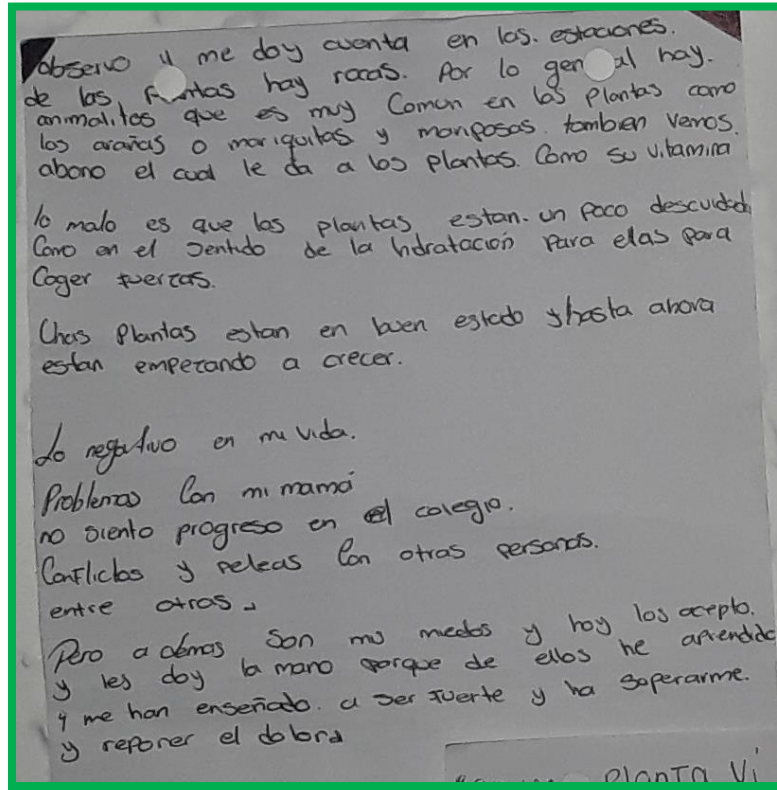 observo y me doy cuenta en las. estaciones.
de las plantas hay rocas. Por lo general hay.
animalitos que es muy Comun en las Plantas como
las arañas o mariquitas y mariposas. tambien vemos.
abono el cual le da a las plantas. Como su vitamina
lo malo es que las plantas estan. un poco descuidad
Como en el sentido de la hidratación para elas para
Coger fuerzas.
Unas Plantas estan en buen estado y hasta ahora
estan empezando a crecer.
Lo negativo en mi vida.
Problemas Con mi mamá
no siento progreso en el colegio.
Conflictos y peleas Con otras personas.
entre otras
Pero a demas Son mis miedos y hoy los acepto.
y les doy la mano porque de ellos he aprendido
y me han enseñado. a ser fuerte y ha soperarme.
y reponer el dolor
PLANTA Vi